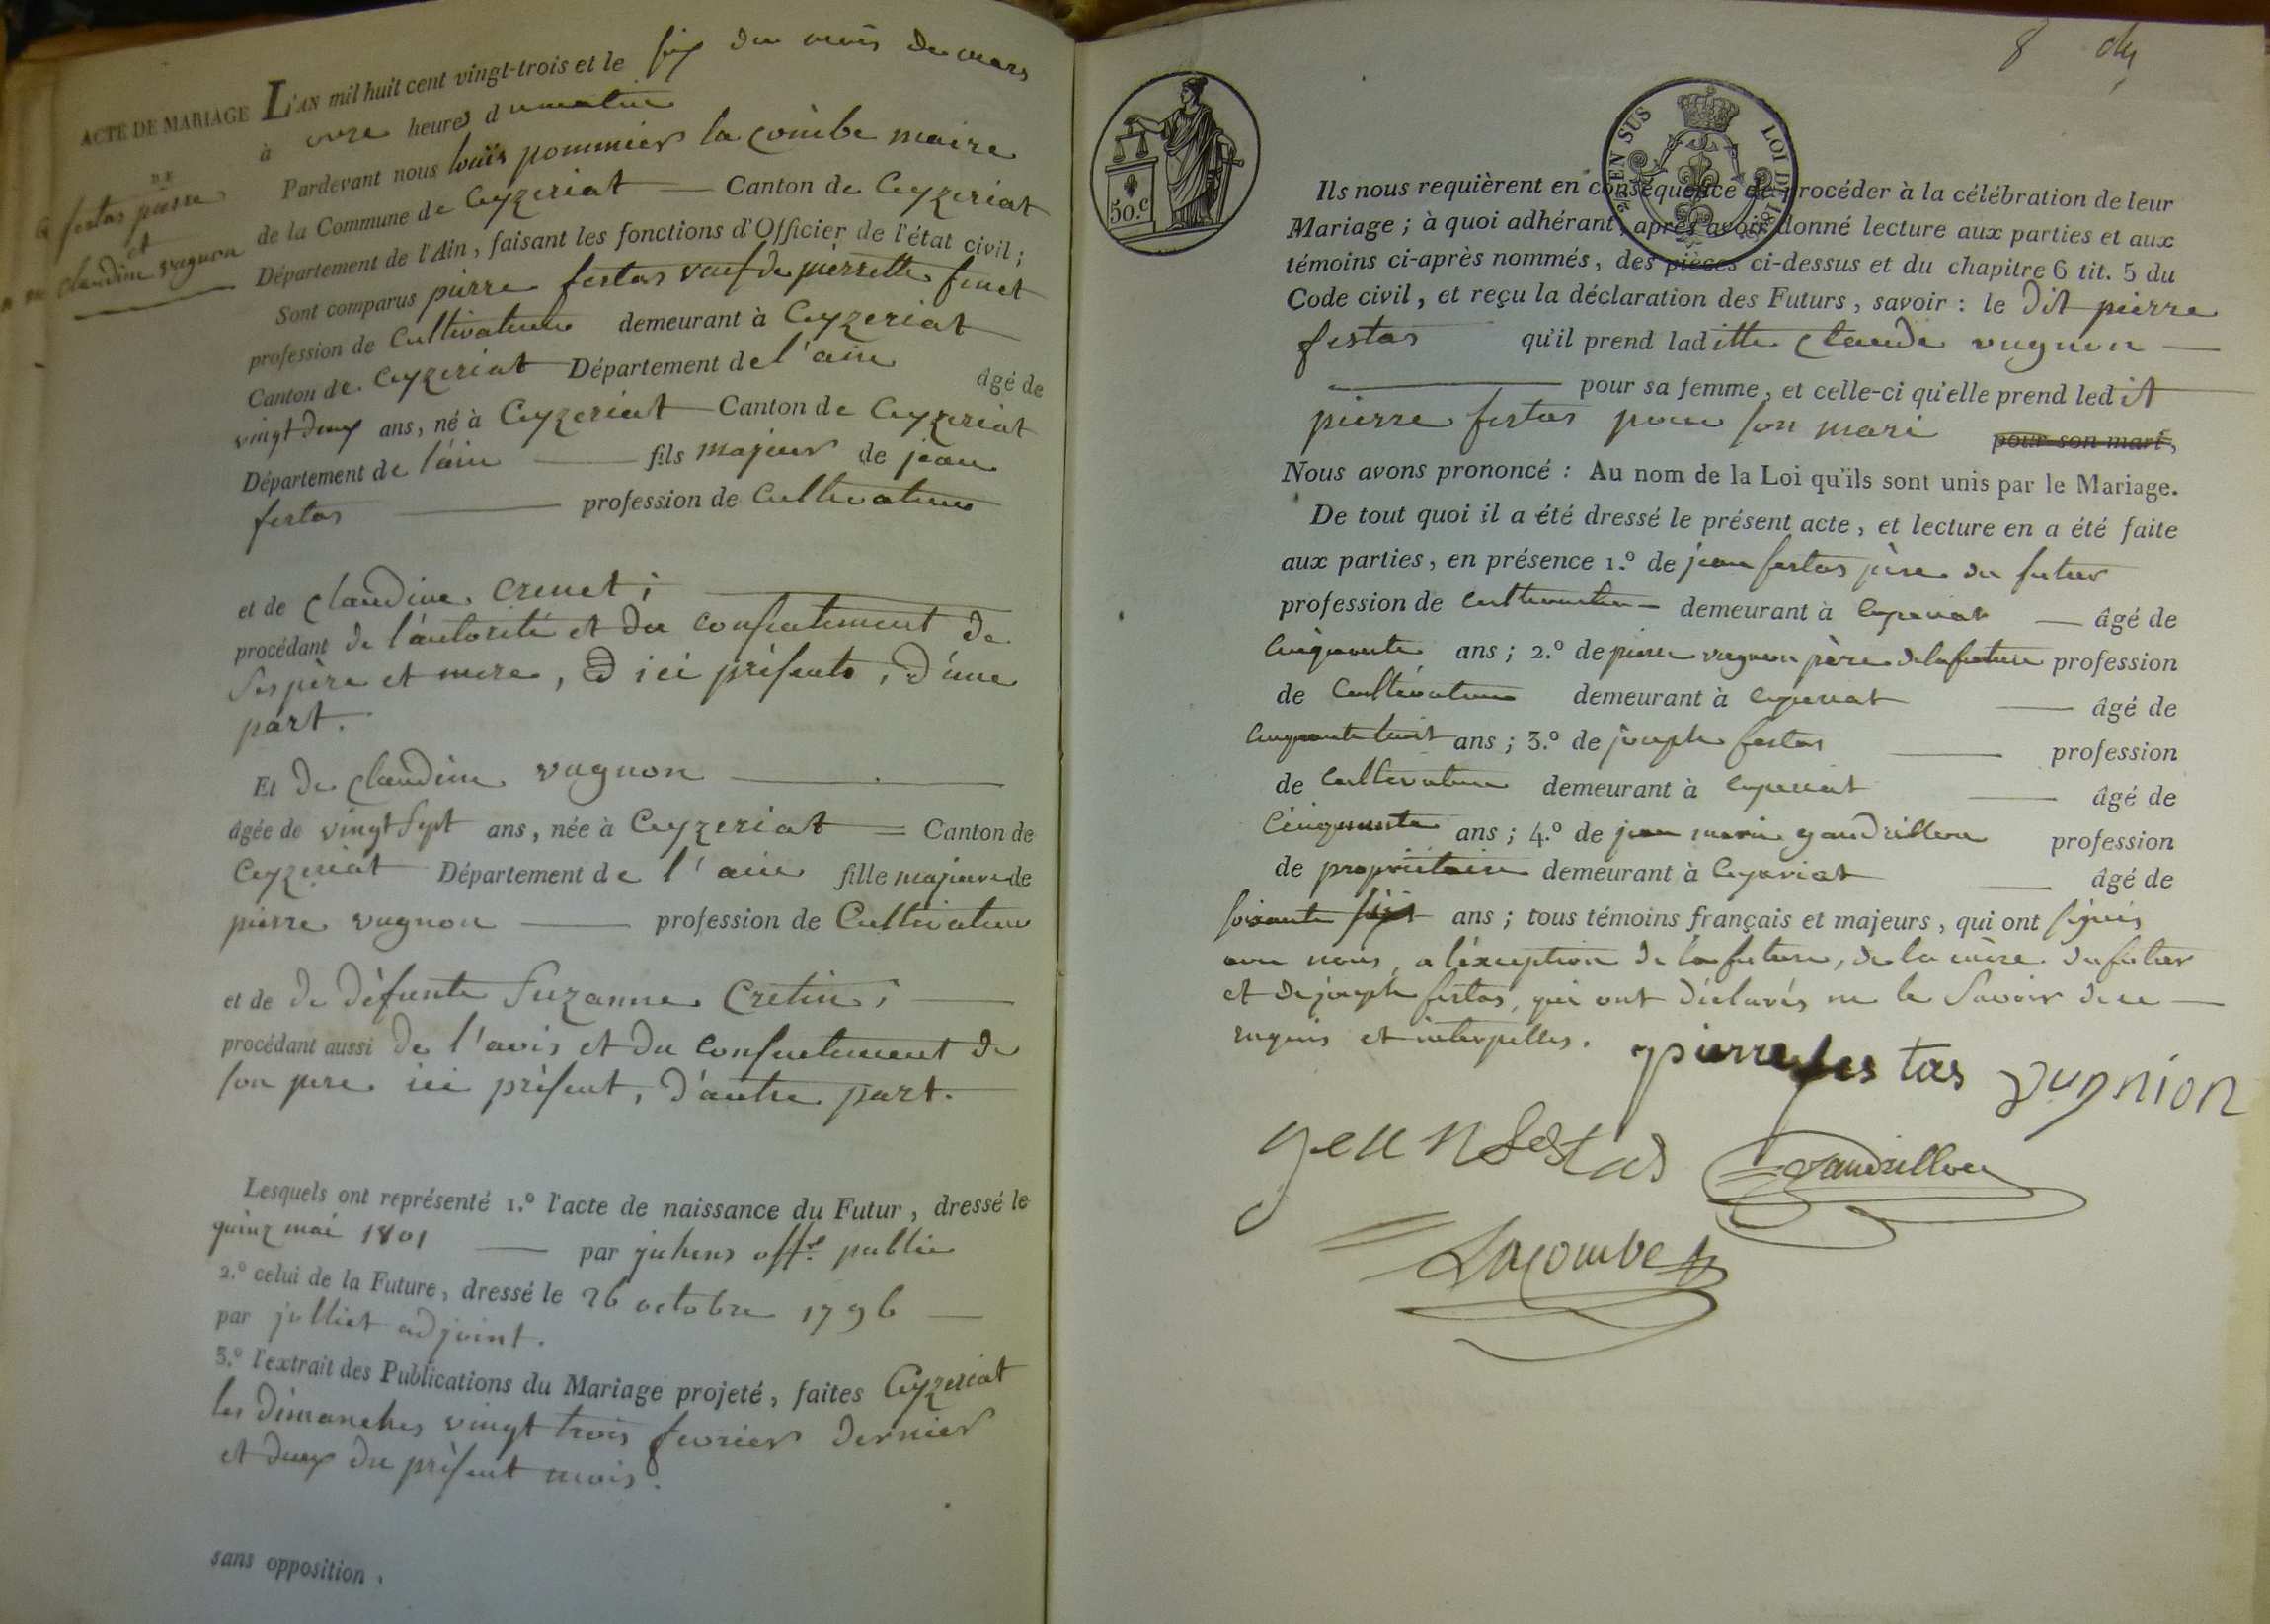 ACTE DE MARIAGE
L'AN mil huit cent vingt-trois et le six du mois de mars
à onze heures du matin
Pardevant nous louis pommier la combe maire
de la Commune de Ceyzeriat — Canton de Ceyzeriat
Département de l'Ain, faisant les fonctions d'Officier de l'état civil;
festas pierre
et
claudine vugnon
Sont comparus pierre festas veuf de pierrette finet
profession de Cultivateur demeurant à Ceyzeriat
Canton de Ceyzeriat Département de l'ain âgé de
vingt deux ans, né à Ceyzeriat Canton de Ceyzeriat
Département de l'ain — fils majeur de jean
festas — profession de Cultivateur
et de Claudine Crenet;
procédant de l'autorité et du consentement de
ses père et mere, ici présents, d'une
part.
Et de claudine vugnon —
âgée de vingt sept ans, née à Ceyzeriat = Canton de
Ceyzeriat Département de l'ain fille majeure de
pierre vugnon — profession de Cultivateur
et de de défunte Suzanne Cretin; —
procédant aussi de l'avis et du consentement de
son pere ici présent, d'autre part.
Lesquels ont représenté 1.º l'acte de naissance du Futur, dressé le
quinz mai 1801 — par juhens off.r public
2.º celui de la Future, dressé le 26 octobre 1796 —
par julliet adjoint.
3.º l'extrait des Publications du Mariage projeté, faites Ceyzeriat
les dimanches vingt trois fevrier dernier
et deux du présent mois.
sans opposition.
8
50.c
EN SUS LOI DE 18
Ils nous requièrent en conséquence de procéder à la célébration de leur
Mariage; à quoi adhérant, après avoir donné lecture aux parties et aux
témoins ci-après nommés, des pièces ci-dessus et du chapitre 6 tit. 5 du
Code civil, et reçu la déclaration des Futurs, savoir: le dit pierre
festas qu'il prend laditte Claude vugnon —
— pour sa femme, et celle-ci qu'elle prend ledit
pierre festas pour son mari pour son mari,
Nous avons prononcé: Au nom de la Loi qu'ils sont unis par le Mariage.
De tout quoi il a été dressé le présent acte, et lecture en a été faite
aux parties, en présence 1.º de jean festas père du futur
profession de cultivateur — demeurant à Ceyzeriat — âgé de
Cinquante ans; 2.º de pierre vugnon père de la future profession
de Cultivateur demeurant à Ceyzeriat — âgé de
Cinquante huit ans; 3.º de joseph festas — profession
de Cultivateur demeurant à Ceyzeriat — âgé de
Cinquante ans; 4.º de jean marie gandrillon profession
de propriétaire demeurant à Ceyzeriat — âgé de
soixante sept ans; tous témoins français et majeurs, qui ont signés
avec nous, a l'exception de la future, de la mère du futur
et de joseph festas, qui ont déclarés ne le savoir de ce —
requis et interpellés.
pierre festas vugnion
gean festas gandrillon
Lacombe